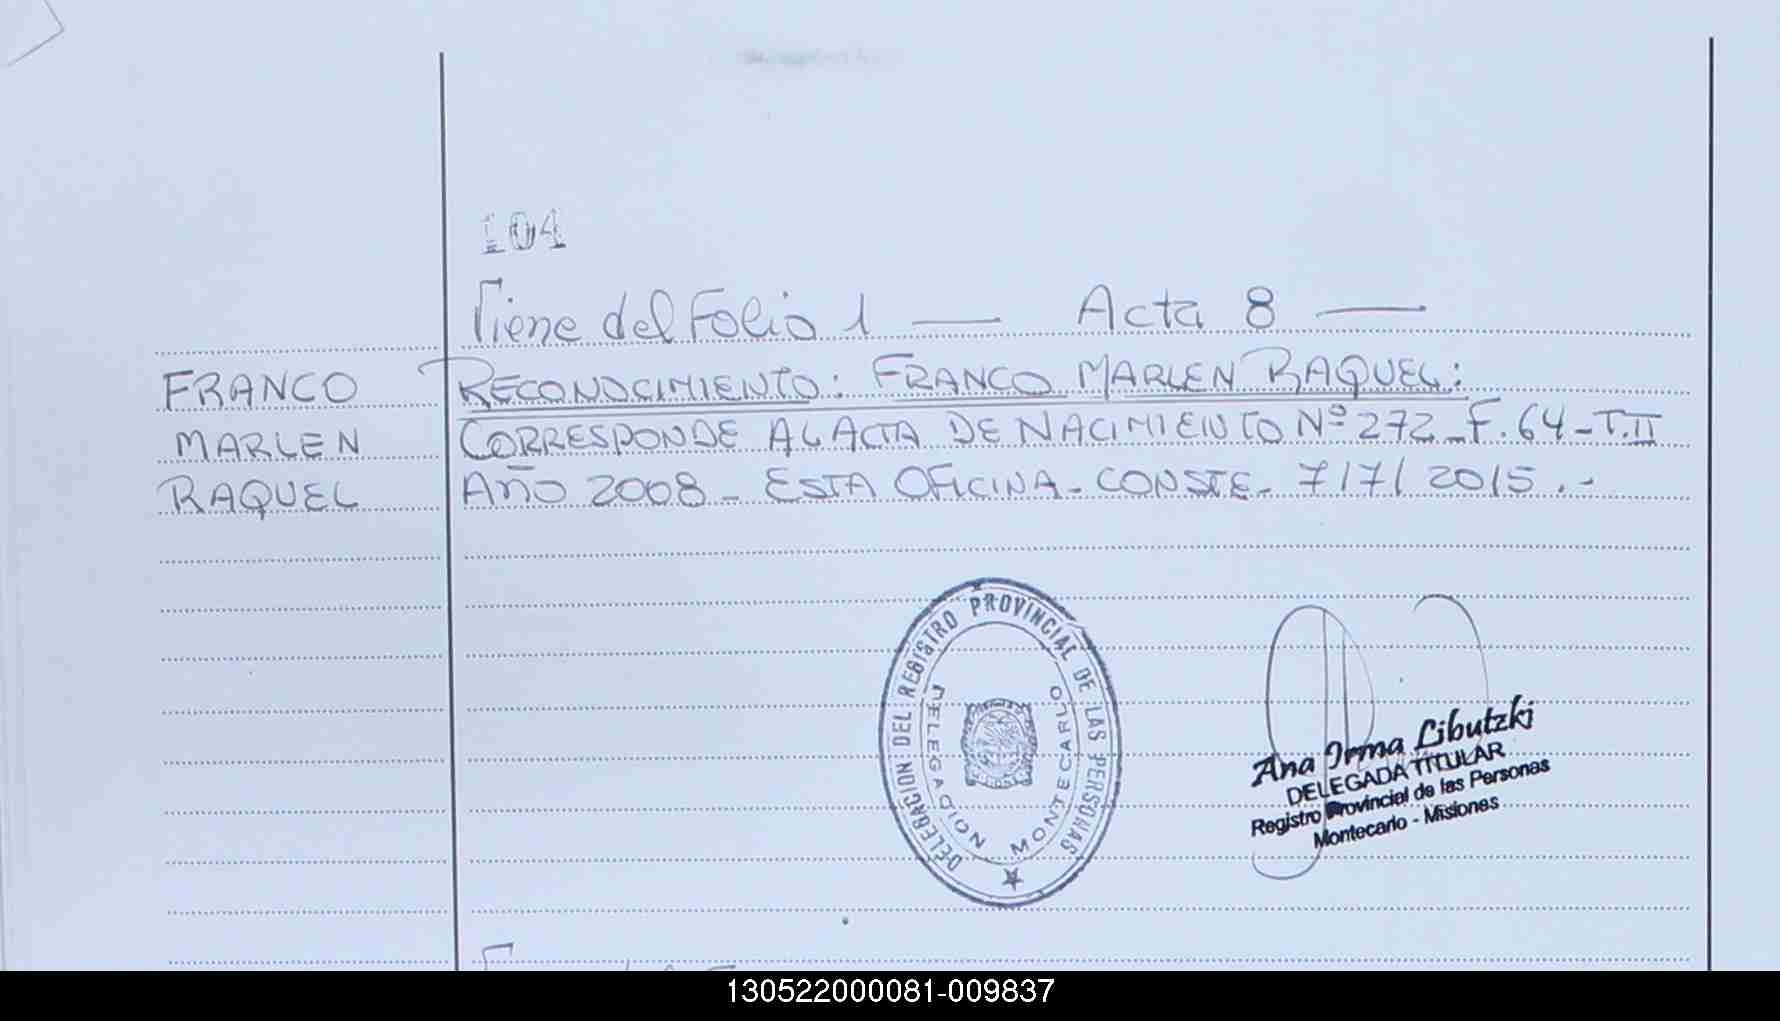 104
Viene del Folio 1 — Acta 8 —
FRANCO MARLEN RAQUEL
RECONOCIMIENTO: FRANCO MARLEN RAQUEL:
CORRESPONDE AL ACTA DE NACIMIENTO Nº 272_F.64-T.II
AÑO 2008 - ESTA OFICINA - CONSTE - 7/7/2015.-
DELEGACION DEL REGISTRO PROVINCIAL DE LAS PERSONAS
DELEGACION MONTECARLO
Ana Irma Libutzki
DELEGADA TITULAR
Registro Provincial de las Personas
Montecarlo - Misiones
130522000081-009837